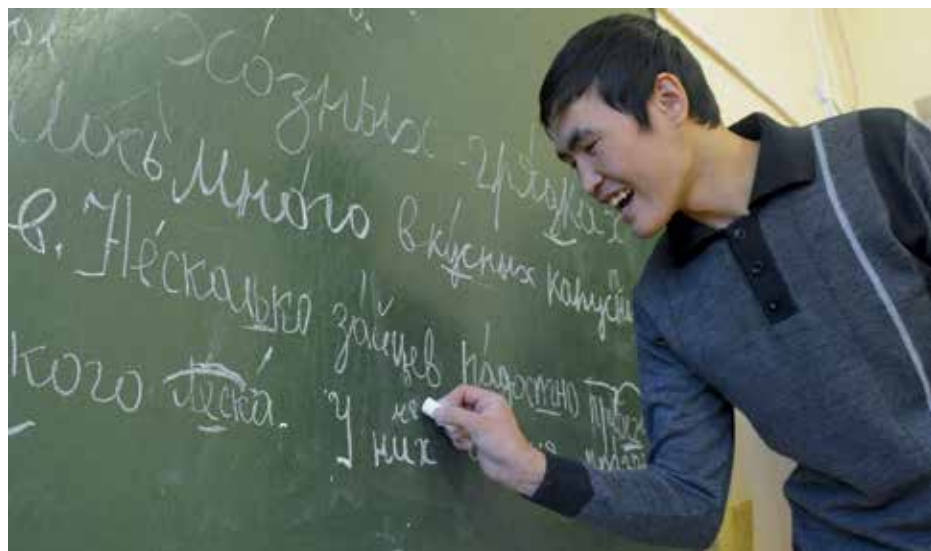 хозных грядках
лось мно́го вку́сных капустн
в. Не́сколько за́йцев ра́достно
кого леска́. У
них